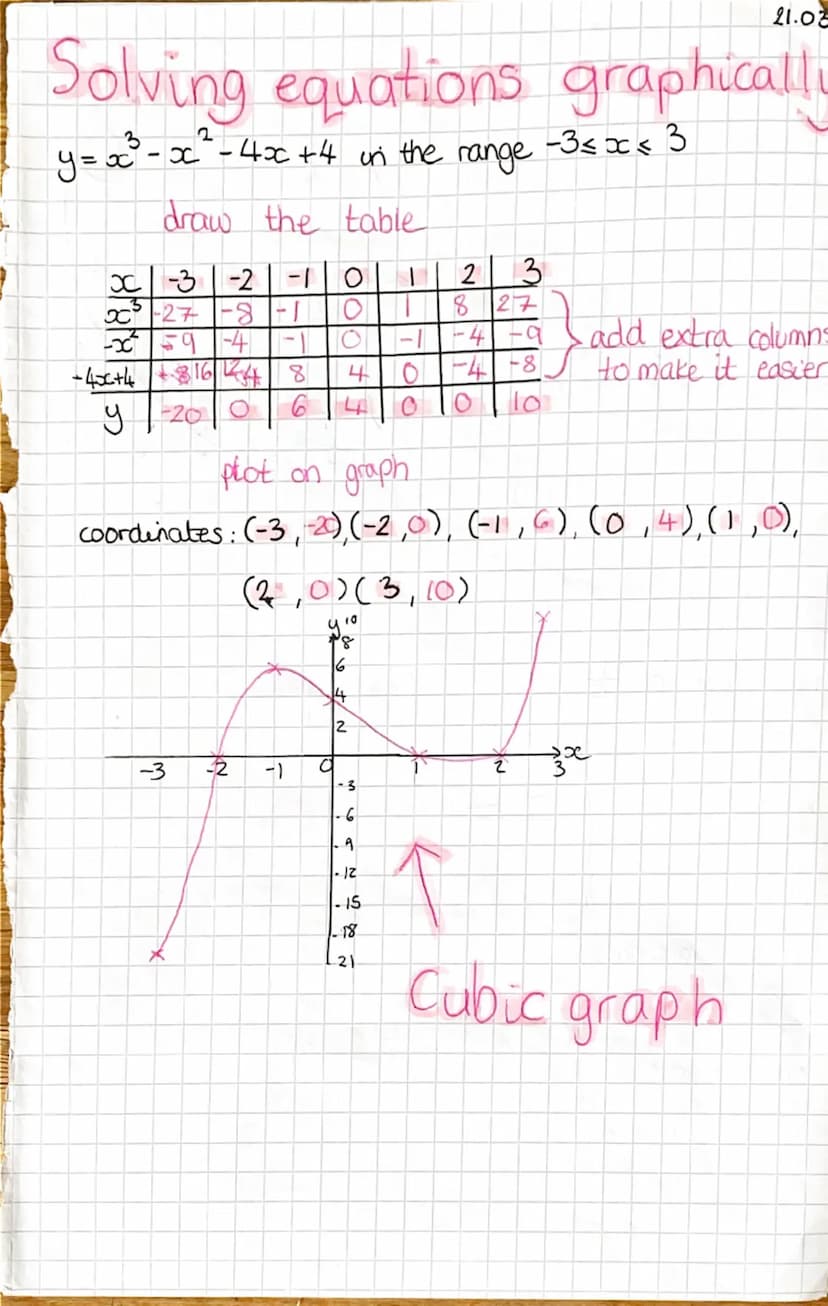 21.03
Solving equations graphically
y = x³ - x² - 4x + 4 in the range -3 ≤ x ≤ 3
draw the table
x | -3 | -2 | -1 | 0 | 1 | 2 | 3
x³ | -27 | -8 | -1 | 0 | 1 | 8 | 27
-x² | -9 | -4 | -1 | 0 | -1 | -4 | -9
-4x+4 | 16 | 12 | 8 | 4 | 0 | -4 | -8
y | -20 | 0 | 6 | 4 | 0 | 0 | 10
add extra columns
to make it easier
plot on graph
coordinates: (-3, -20), (-2, 0), (-1, 6), (0, 4), (1, 0),
(2, 0) (3, 10)
y 10
8
6
4
2
-3 -2 -1 0 1 2 3 x
-3
-6
-9
-12
-15
-18
21
Cubic graph